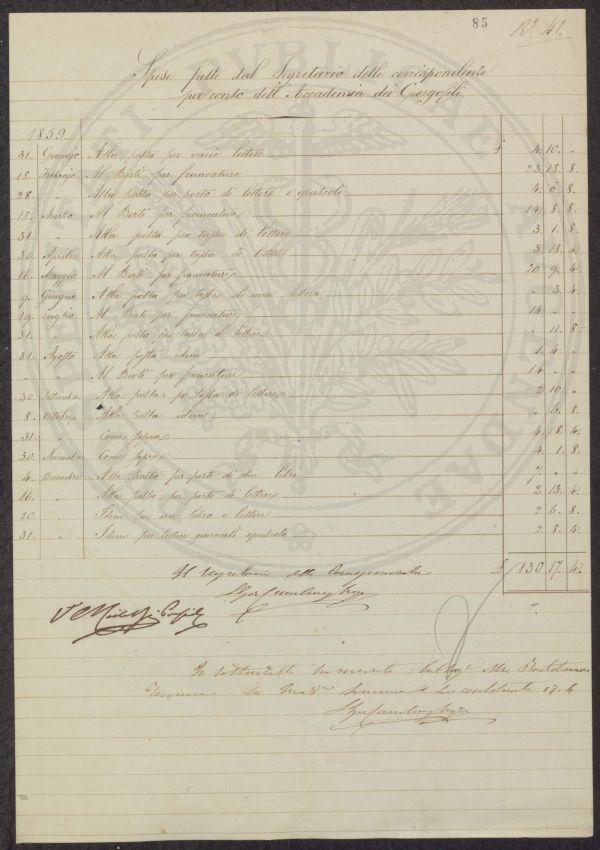 85
R.o 41.
Spese fatte dal Segretario delle corrispondenze
per conto dell'Accademia dei Georgofili
1859.
31. Gennajo Alla posta per varie lettere £ 4. 10. "
18. Febrajo Al Berti per francature 23. 18. 8.
28. " Alla posta per porto di lettere e opuscoli 4. 0. 8.
18. Marzo Al Berti per francature 14. 8. 8.
31. " Alla posta per tassa di lettere 3. 1. 8.
30. Aprile Alla posta per tassa di lettere 3. 18. 4.
16. Maggio Al Berti per francature 20. 9. 4.
9. Giugno Alla posta per tassa di una lettera " 3. 4.
19. Luglio Al Berti per francature 14 " "
31. " Alla posta per tassa di lettere " 11. 8.
31. Agosto Alla posta idem 1. 4. "
" " Al Berti per francature 14 " "
30. Settembre Alla posta per tassa di lettere 2. 10 "
8. Ottobre Alla posta idem " 6. 8.
31. " Come sopra 4. 18. 4.
30. Novembre Come sopra 4. 1. 8.
4. Decembre Alla posta per porto di due libri 7 " "
16. " Alla posta per porto di lettere 2. 13. 4.
20. " Idem per un libro e lettere 2. 6. 8.
31. " Idem per lettere giornali opuscolo 2. 8. 4.
£ 130. 17. 4.
Il Segretario delle Corrispondenze
Io sottoscritto ho ricevuto dal Sig.
la somma